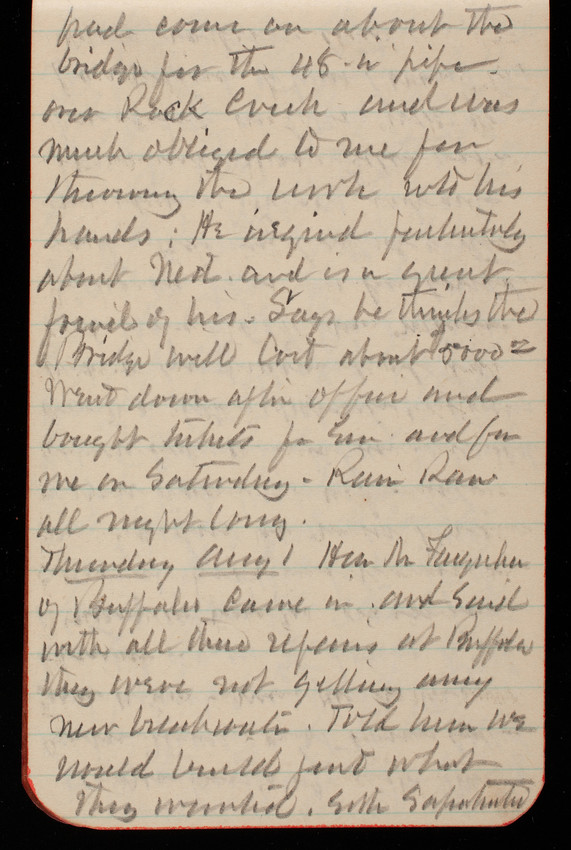 had come on about the
bridge for the 48 in pipe
over Rock Creek and was
much obliged to me for
throwing the work into his
hands; He inquired particularly
about Ned and is a great
friend of his. Says he thinks the
Bridge will cost about $5000 00
Went down after office and
bought tickets for Em and for
me on Saturday - Rain Rain
all night long.
Thursday Aug 1 Hon Mr Farquhar
of Buffalo came in and said
with all these repairs at Buffalo
they were not getting any
new breakwater. Told him we
would build just what
they wanted.